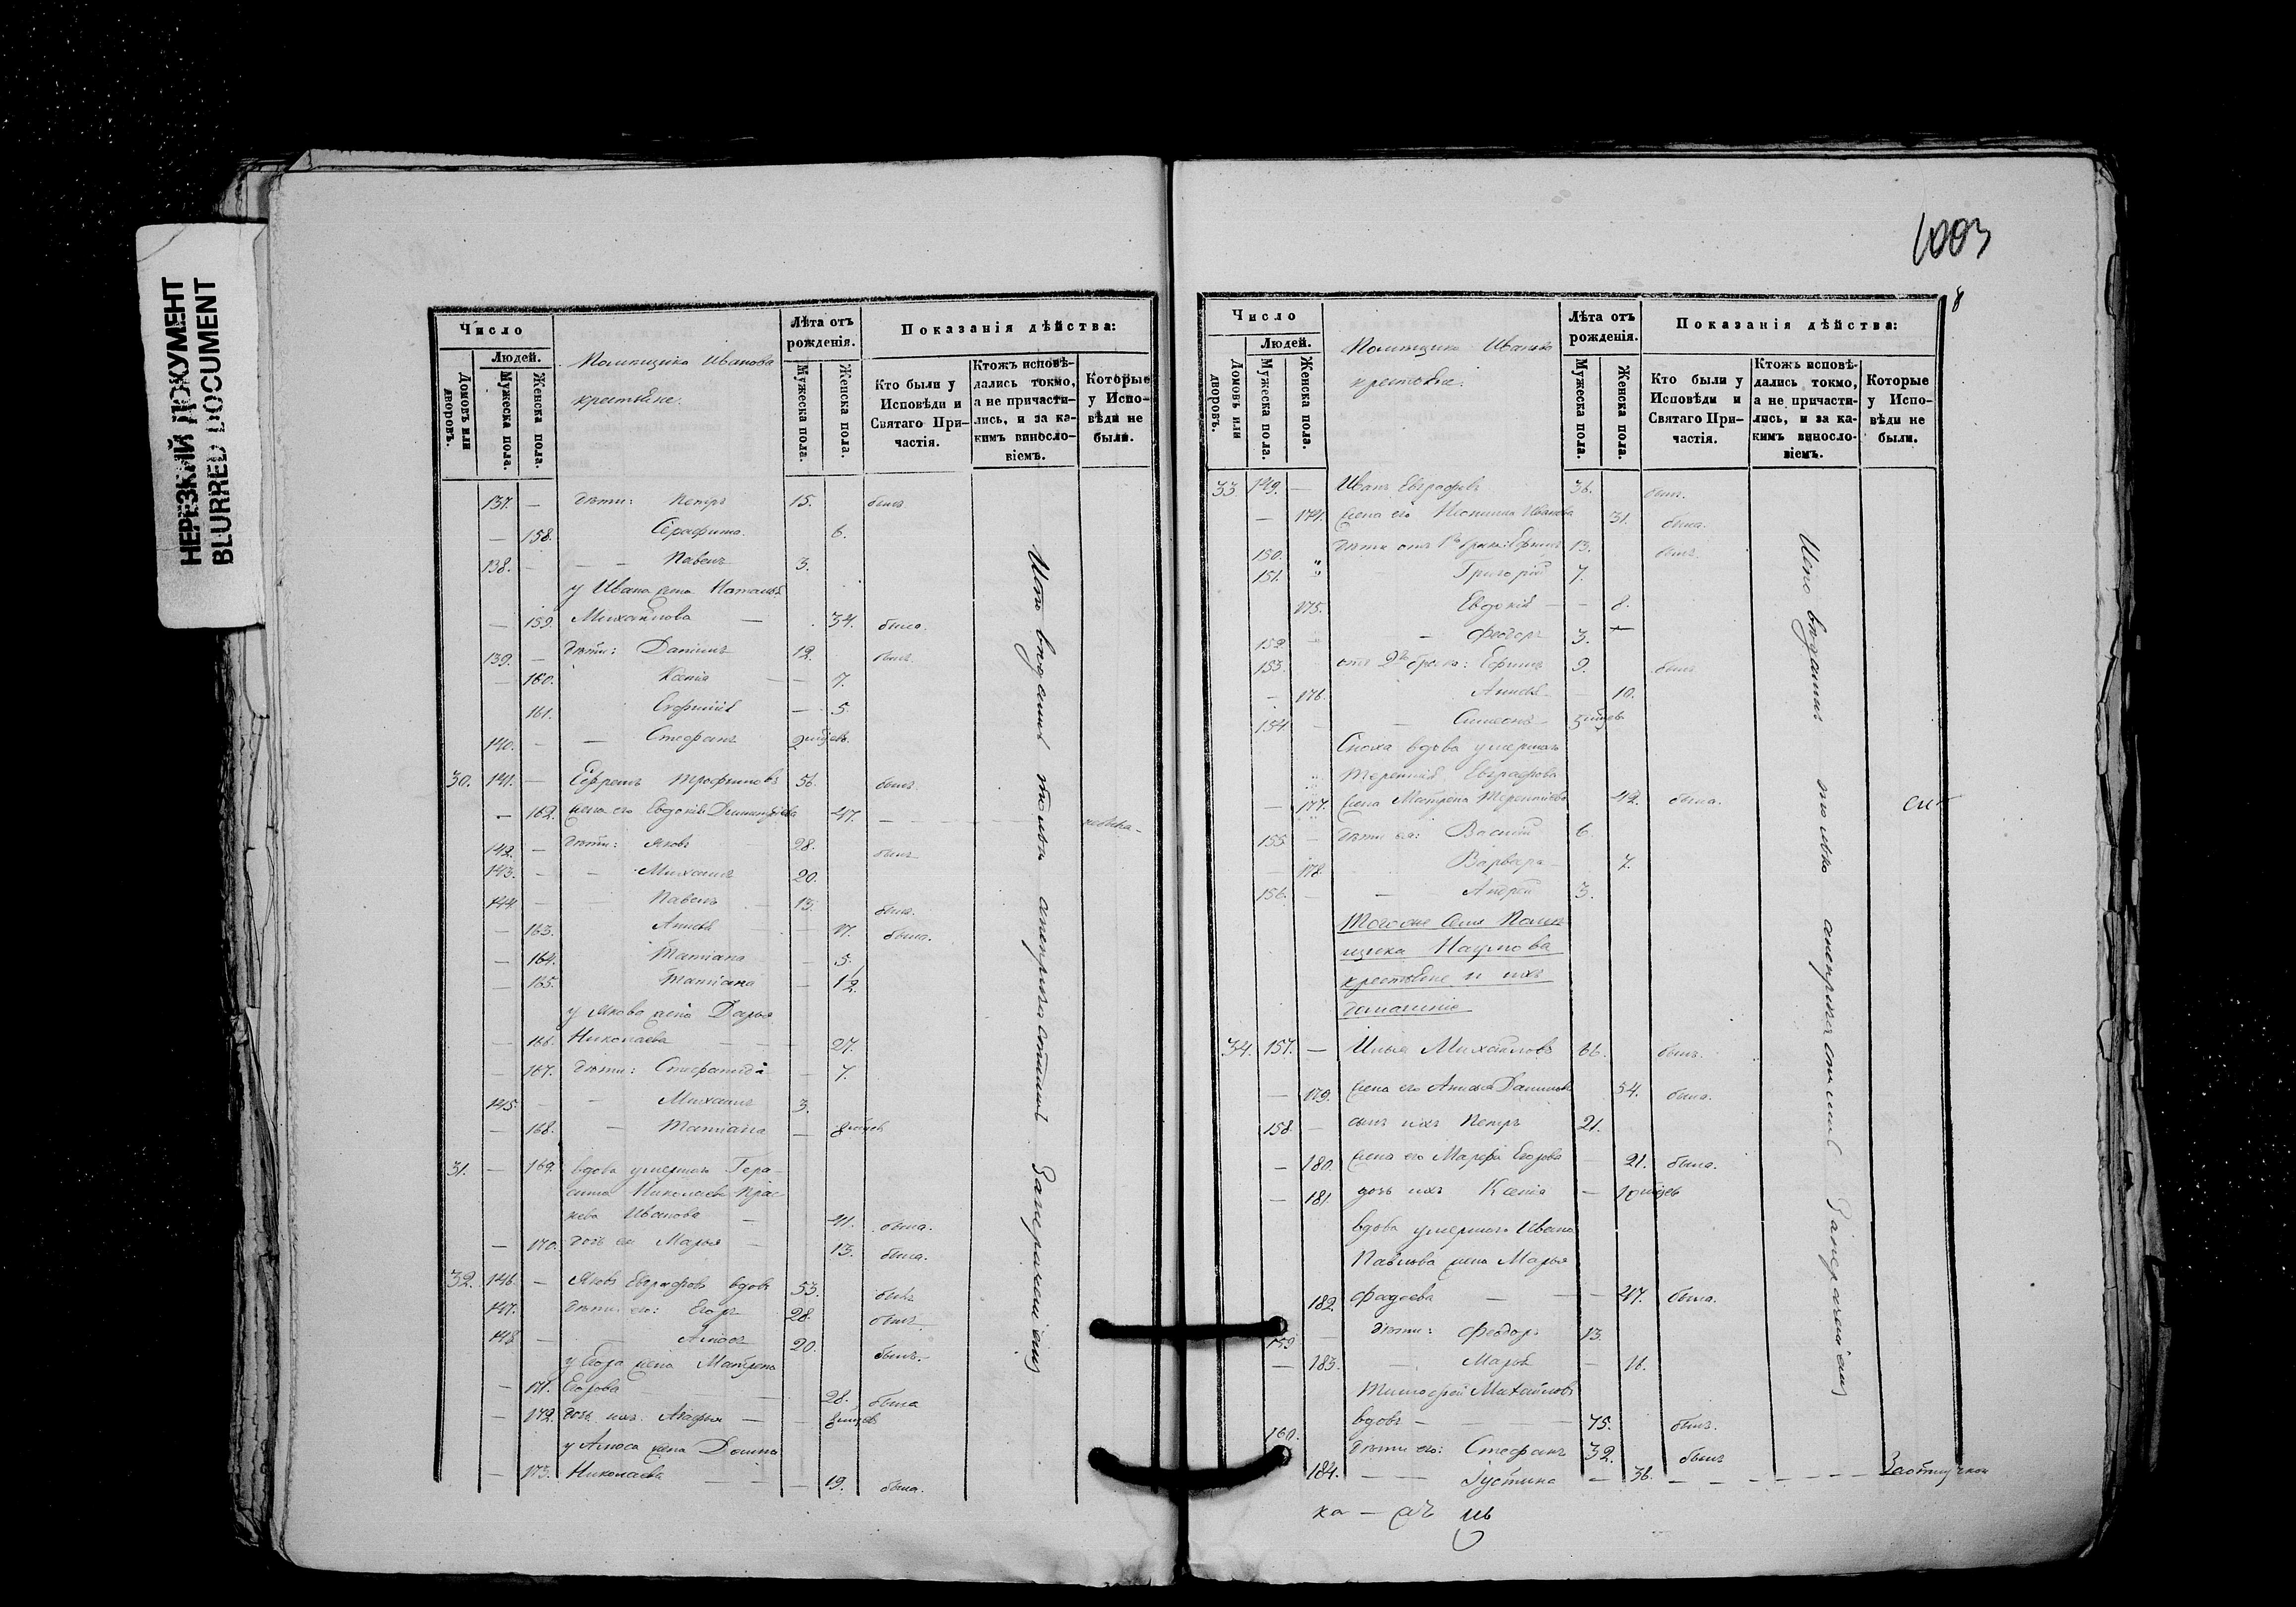 НЕРЕЗКИЙ ДОКУМЕНТ
BLURRED DOCUMENT
Число
Людей.
Домовъ или дворовъ.
Мужеска пола.
Женска пола.
Помѣщика Иванова
крестьяне.
Лѣта отъ рожденія.
Мужеска пола.
Женска пола.
Показанія дѣйства:
Кто были у Исповѣди и Святаго Причастія.
Ктожъ исповѣдались токмо, а не причастились, и за какимъ винословіемъ.
Которые у Исповѣди не были.
137. — дѣти: Петръ 15. былъ
— 158. Серафима. 6.
138. — — Павелъ 3.
у Ивана жена Наталья
— 159. Михайлова — 34. была.
139. — дѣти: Даніилъ 12. былъ
— 160. Ксенія — — 7.
161. Евфимія — 5.
140. — — Стефанъ 2 мѣсяц.
30. 141. — Ефремъ Трофимовъ 56. былъ
— 162. жена его Евдокія Димитріева 47. —
142. — дѣти: Яковъ 28. былъ
143. — — Михаилъ 20.
144. — — Павелъ — 13. былъ.
— 163. Анна — 17. была.
— 164. Татіана — 5.
— 165. Татіана — 12.
у Якова жена Дарья
— 166. Николаева — — — 27.
— 167. дѣти: Стефанида — 7.
145. — — Михаилъ 3.
— 168. — Татіана — 8 мѣсяц.
31. — 169. вдова умершаго Гера-
сима Николаева Прас-
кева Иванова — 41. была.
— 170. дочь ея Марья — 13. была.
32. 146. — Яковъ Евграфовъ вдовъ 53. былъ
147. дѣти его: Егоръ 28. былъ
148. — Амосъ 20. былъ.
у Егора жена Матрена
— 171. Егорова — 28. была
— 172. дочь ихъ Агафья — — 8 мѣсяц
у Амоса жена Домна
— 173. Николаева — — — 19. была.
Исповѣдались только а непричастились За
1003
8
Число
Людей.
Домовъ или дворовъ.
Мужеска пола.
Женска пола.
Помѣщика Иванова
крестьяне.
Лѣта отъ рожденія.
Мужеска пола.
Женска пола.
Показанія дѣйства:
Кто были у Исповѣди и Святаго Причастія.
Ктожъ исповѣдались токмо, а не причастились, и за какимъ винословіемъ.
Которые у Исповѣди не были.
33 149. — Иванъ Евграфовъ 36. былъ.
— 174. жена его Иванова 31. была.
150. " дѣти отъ 1го брака: Ефимъ 13. былъ
151. " Григорій 7.
175. Евдокія — — 8.
152. — Феодоръ 3.
153. отъ 2го брака: Ефимъ 9. былъ
— 176. Анна — 10.
154. — — Симеонъ — 5 мѣсяц
Сноха вдова умершаго
Терентія Евграфова
— 177. жена Матрена Терентіева 42. была.
155. — дѣти ея: Василій 6.
178. Варвара — 7.
156. — — Андрей 3.
Тогоже Села Помѣ-
щика Наумова
крестьяне и ихъ
домашніе
34. 157. — Илья Михайловъ 66. былъ.
— 179. жена его Даніилова 54. была.
158. — сынъ ихъ Петръ 21.
— 180. жена его Марфа Егорова 21. была.
— 181. дочь ихъ Ксенія — 10 мѣсяц
вдова умершаго Ивана
Павлова жена Марья
182. Фадѣева — — — 47. была.
159 — дѣти: Феодоръ 13.
— 183. — Марья — 16.
Тимофей Михайловъ
160. вдовъ — — — 75. былъ.
дѣти его: Стефанъ 32. былъ
184. — — Іустина — 36. — — — —
Исповѣдались только а непричастились За